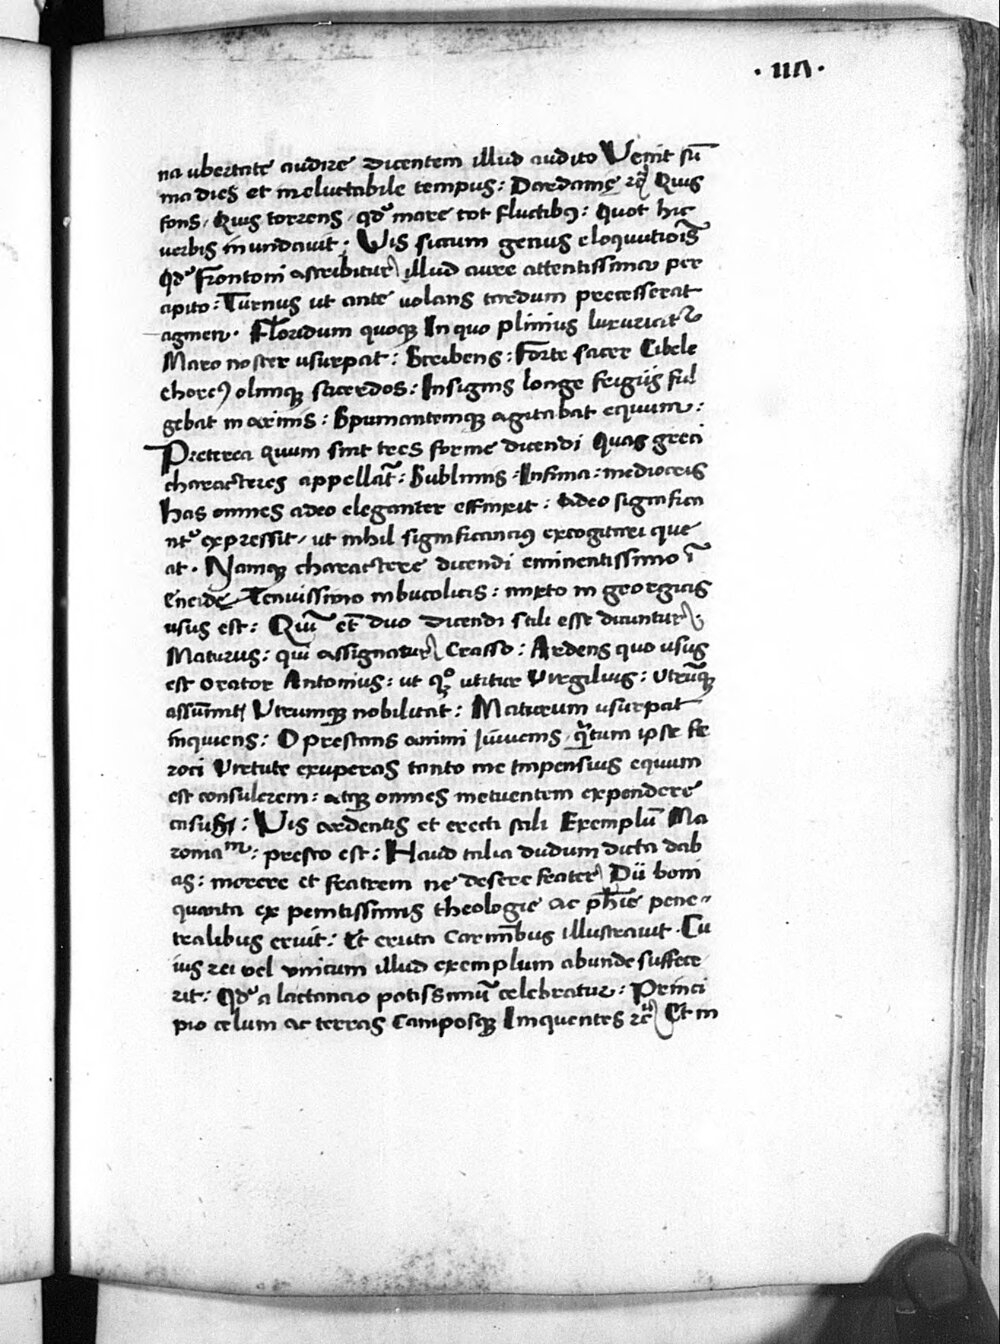 · 117 ·
na ubertate audire dicentem illud audito Venit sū
ma dies et ineluctabile tempus : Dardanię rꝫ Quis
fons / Quis torrens / qdͦ mare tot fluctibꝯ : Quot hic
verbis inundavit : Vis siccum genus eloquutiōis
Qdͦ Frontoni ascribitur illud aure attentissima per
cipito : Turnus ut ante volans tardum precesserat
agmen · Floridum quoqꝫ In quo plinius luxuriat᷑
Maro noster usurpat : Scribens : Forte sacer Cibele
choreꝯ olimqꝫ sacerdos : Insignis longe frigiis ful
gebat in armis : Spumantemqꝫ agitabat equum :
Preterea quum sint tres forme dicendi Quas greci
characteres appellāt : Sublimis · Infima : mediocris
has omnes adeo eleganter effinxit : adeo significa
ntͬ expressit / ut nihil significanciꝯ excogitari que
at · Namqꝫ charactere dicendi eminentissimo ī
Eneide Tenuissimo in bucolicis : mixto in georgicis
usus est : Qui et duo dicendi stili esse dicuntur
Maturus : qui assignatur Crasso : Ardens quo usus
est orator Antonius : ut qꝫͦ utitur Virgilius : Utrūqꝫ
assumit Utrumqꝫ nobilitat : Maturum usurpat
inquiens : O prestans animi Juvenis qͣtum ipse fe
roci Virtute exuperas tanto me Impensius equum
est consulerem : atqꝫ omnes metuentem expendere
casus : Vis ardentis et erecti stili Exemplū Ma
roniaᵐ : presto est : Haud talia dudum dicta dab
as : morere et fratrem ne desere frater Dii boni
quanta ex penitissimis theologie ac phīe pene⸗
tralibus eruit : Et eruta Carmībus illustravit · Cu
ius rei vel unicum illud exemplum abunde suffece
rit : Qdͦ a lactancio potissimū celebratur : Princi
pio celum ac terras Camposqꝫ liquentes rꝫ Et in